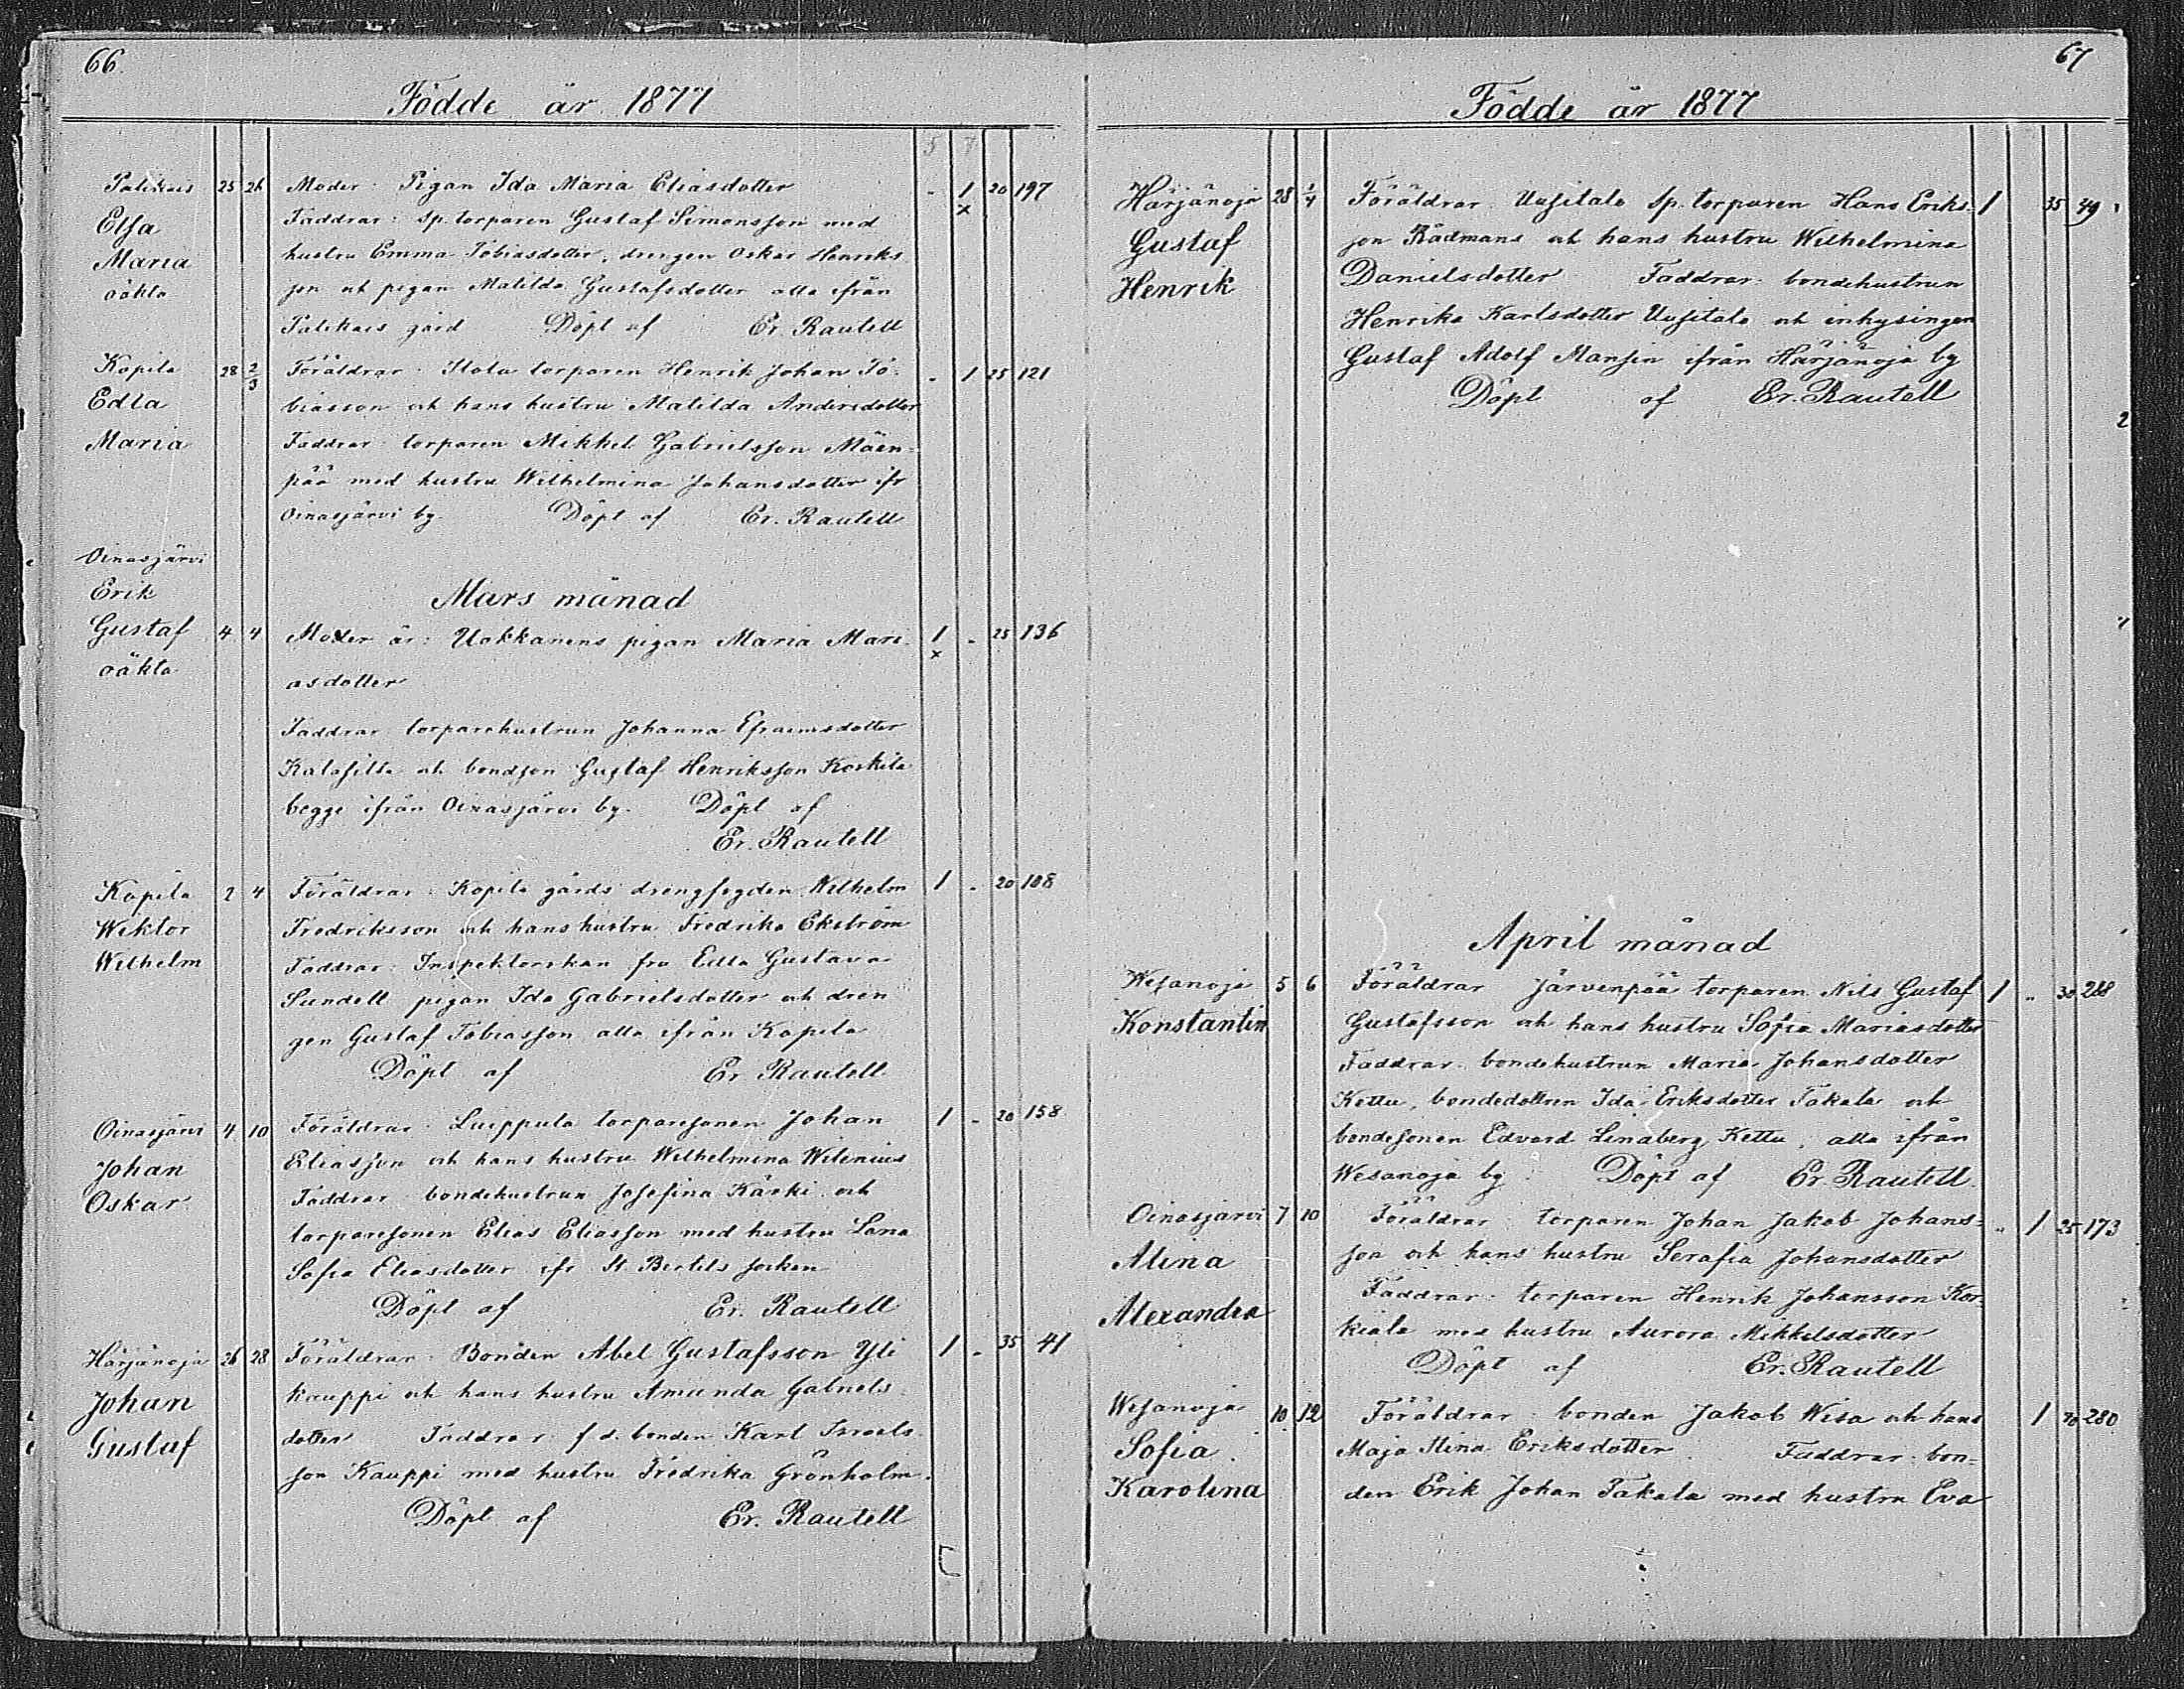 66.
Födde år 1877
5 7
Palikais 25 26 Moder: Pigan Ida Maria Eliasdotter - 1 20 197
Elsa Faddrar: sp. torparen Gustaf Simonsson med x
Maria hustru Emma Tobiasdotter, drengen Oskar Henriks
oäkta son och pigan Matilda Gustafsdotter alla ifrån
Palikais gård Döpt af Er. Rautell
Kopila 28 2/3 Föräldrar: Stola torparen Henrik Johan To- - 1 25 121
Edla biasson och hans hustru Matilda Andersdotter
Maria Faddrar torparen Mikkel Gabrielsson Mäen-
pää med hustru Wilhelmina Johansdotter ifr
Oinasjärvi by. Döpt af Er. Rautell
Oinasjärvi
Erik Mars månad
Gustaf 4 4 Moder är: Uokkanens pigan Maria Mari- 1 - 25 136
oäkta asdotter x
Faddrar torparehustrun Johanna Efraimsdotter
Katasilta och bondson Gustaf Henriksson Koskila
begge ifrån Oinasjärvi by. Döpt af
Er. Rautell
Kopila 2 4 Föräldrar: Kopila gårds drengfogden Wilhelm 1 - 20 108
Wiktor Fredriksson och hans hustru Fredrika Ekström
Wilhelm Faddrar: Inspektorskan fru Edla Gustava
Sundell pigan Ida Gabrielsdotter och dren
gen Gustaf Tobiasson alla ifrån Kopila
Döpt af Er. Rautell
Oinasjärvi 4 10 Föräldrar: Luippula torparesonen Johan 1 - 20 158
Johan Eliasson och hans hustru Wilhelmina Wilenius
Oskar Faddrar bondehustrun Josefina Kärki och
torparesonen Elias Eliasson med hustru Lena
Sofia Eliasdotter ifr St. Bertils socken
Döpt af Er. Rautell
Härjänoja 26 28 Föräldrar: Bonden Abel Gustafsson Yli 1 - 35 41
Johan kauppi och hans hustru Amanda Gabriels-
Gustaf dotter Faddrar f.d. bonden Karl Israels
son Kauppi med hustru Fredrika Grönholm.
Döpt af Er. Rautell
67
Födde år 1877
Härjänoja 28 1/4 Föräldrar Uusitalo sp. torparen Hans Eriks- 1 35 49
Gustaf son Rådmans och hans hustru Wilhelmina
Henrik Danielsdotter Faddrar: bondehustrun
Henrika Karlsdotter Uusitalo och inhysingen
Gustaf Adolf Mansin ifrån Härjänoja by
Döpt af Er. Rautell
April månad
Wesanoja 5 6 Föräldrar Järvenpää torparen Nils Gustaf 1 - 30 288
Konstantin Gustafsson och hans hustru Sofia Mariasdotter
Faddrar bondehustrun Maria Johansdotter
Kettu, bondedottren Ida Eriksdotter Takala och
bondesonen Edvard Lindberg Kettu, alla ifrån
Wesanoja by. Döpt af Er. Rautell
Oinasjärvi 7 10 Föräldrar: torparen Johan Jakob Johans- - 1 25 173
Alina son och hans hustru Serafia Johansdotter
Alexandra Faddrar: torparen Henrik Johansson Kor-
kiala med hustru Aurora Mikkelsdotter
Döpt af Er. Rautell
Wesanoja 10 12 Föräldrar: bonden Jakob Wisa och hans 1 70 280
Sofia Maja Stina Eriksdotter. Faddrar: bon-
Karolina den Erik Johan Takala med hustru Eva